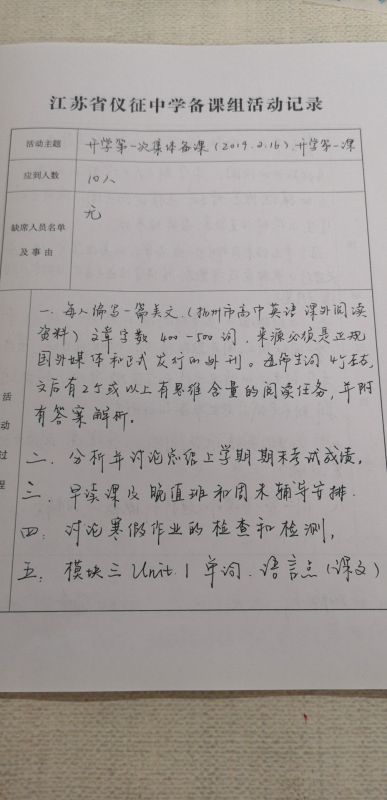 江苏省仪征中学备课组活动记录
活动主题 开学第一次集体备课(2019.2.16).开学第一课
应到人数 10人
缺席人员名单及事由 无
活动过程
一.每人编写一篇美文.(扬州市高中英语课外阅读
资料)文章字数400-500词,来源必须是正规
国外媒体和正式发行的册刊。选师生词4个左右,
文后有2个或以上有思维含量的阅读任务,并附
有答案解析。
二.分析并讨论总结上学期期末考试成绩,
三.早读课及晚值班和周末辅导安排.
四:讨论寒假作业的检查和检测,
五:模块三Unit.1单词.语言点(课文)